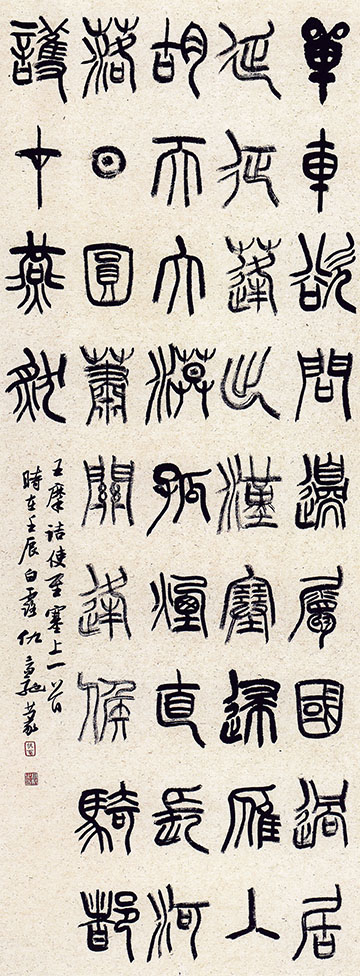 單車欲問邊屬國過居
延征蓬出漢塞歸雁入
胡天大漠孤煙直長河
落日圓蕭關逢候騎都
護在燕然
王摩詰使至塞上一首
時在壬辰白露仇高馳篆